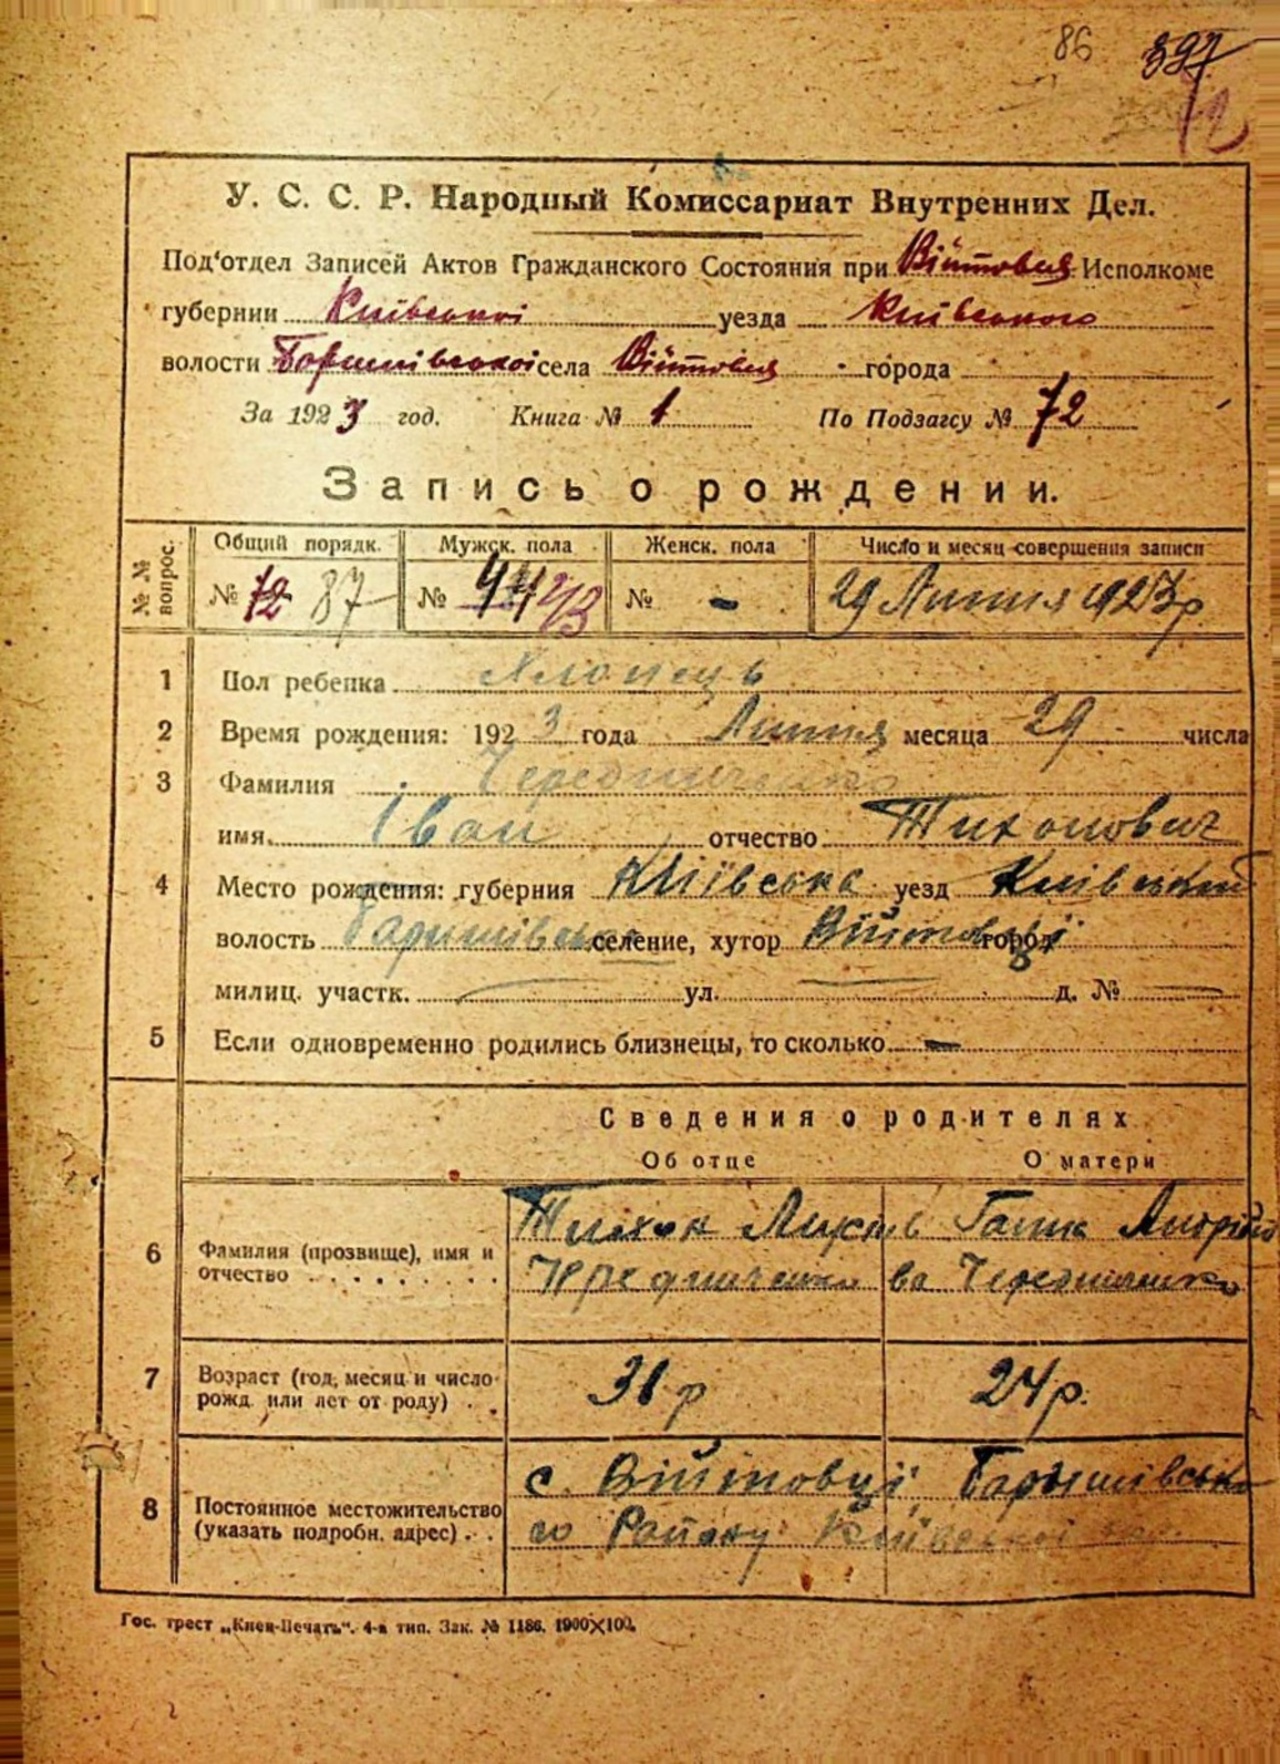 86 397
У. С. С. Р. Народный Комиссариат Внутренних Дел.
Под'отдел Записей Актов Гражданского Состояния при Війтовця Исполкоме
губернии Київської уезда Київського
волости Баришівської села Війтовця города
За 1923 год. Книга № 1 По Подзагсу № 72
Запись о рождении.
№ № вопрос. Общий порядк. Мужск. пола Женск. пола Число и месяц совершения записи
№ 72 87 № № - 29 Липня 1923 р.
1 Пол ребенка Хлопець
2 Время рождения: 1923 года Липня месяца 29 числа
3 Фамилия Чередниченко
имя Іван отчество Тихонович
4 Место рождения: губерния Київська уезд Київський
волость Баришівська селение, хутор Війтовці город
милиц. участк. ул. д. №
5 Если одновременно родились близнецы, то сколько —
Сведения о родителях
Об отце О матери
6 Фамилия (прозвище), имя и отчество Тихон Чередниченко Ганна Андрієва Чередниченко
7 Возраст (год, месяц и число рожд. или лет от роду) 31 р 24 р.
8 Постоянное местожительство (указать подробн. адрес) с. Війтовці Баришівсько
го Району Київської
Гос. трест „Киев-Печать". 4-я тип. Зак. № 1186. 1900×100.